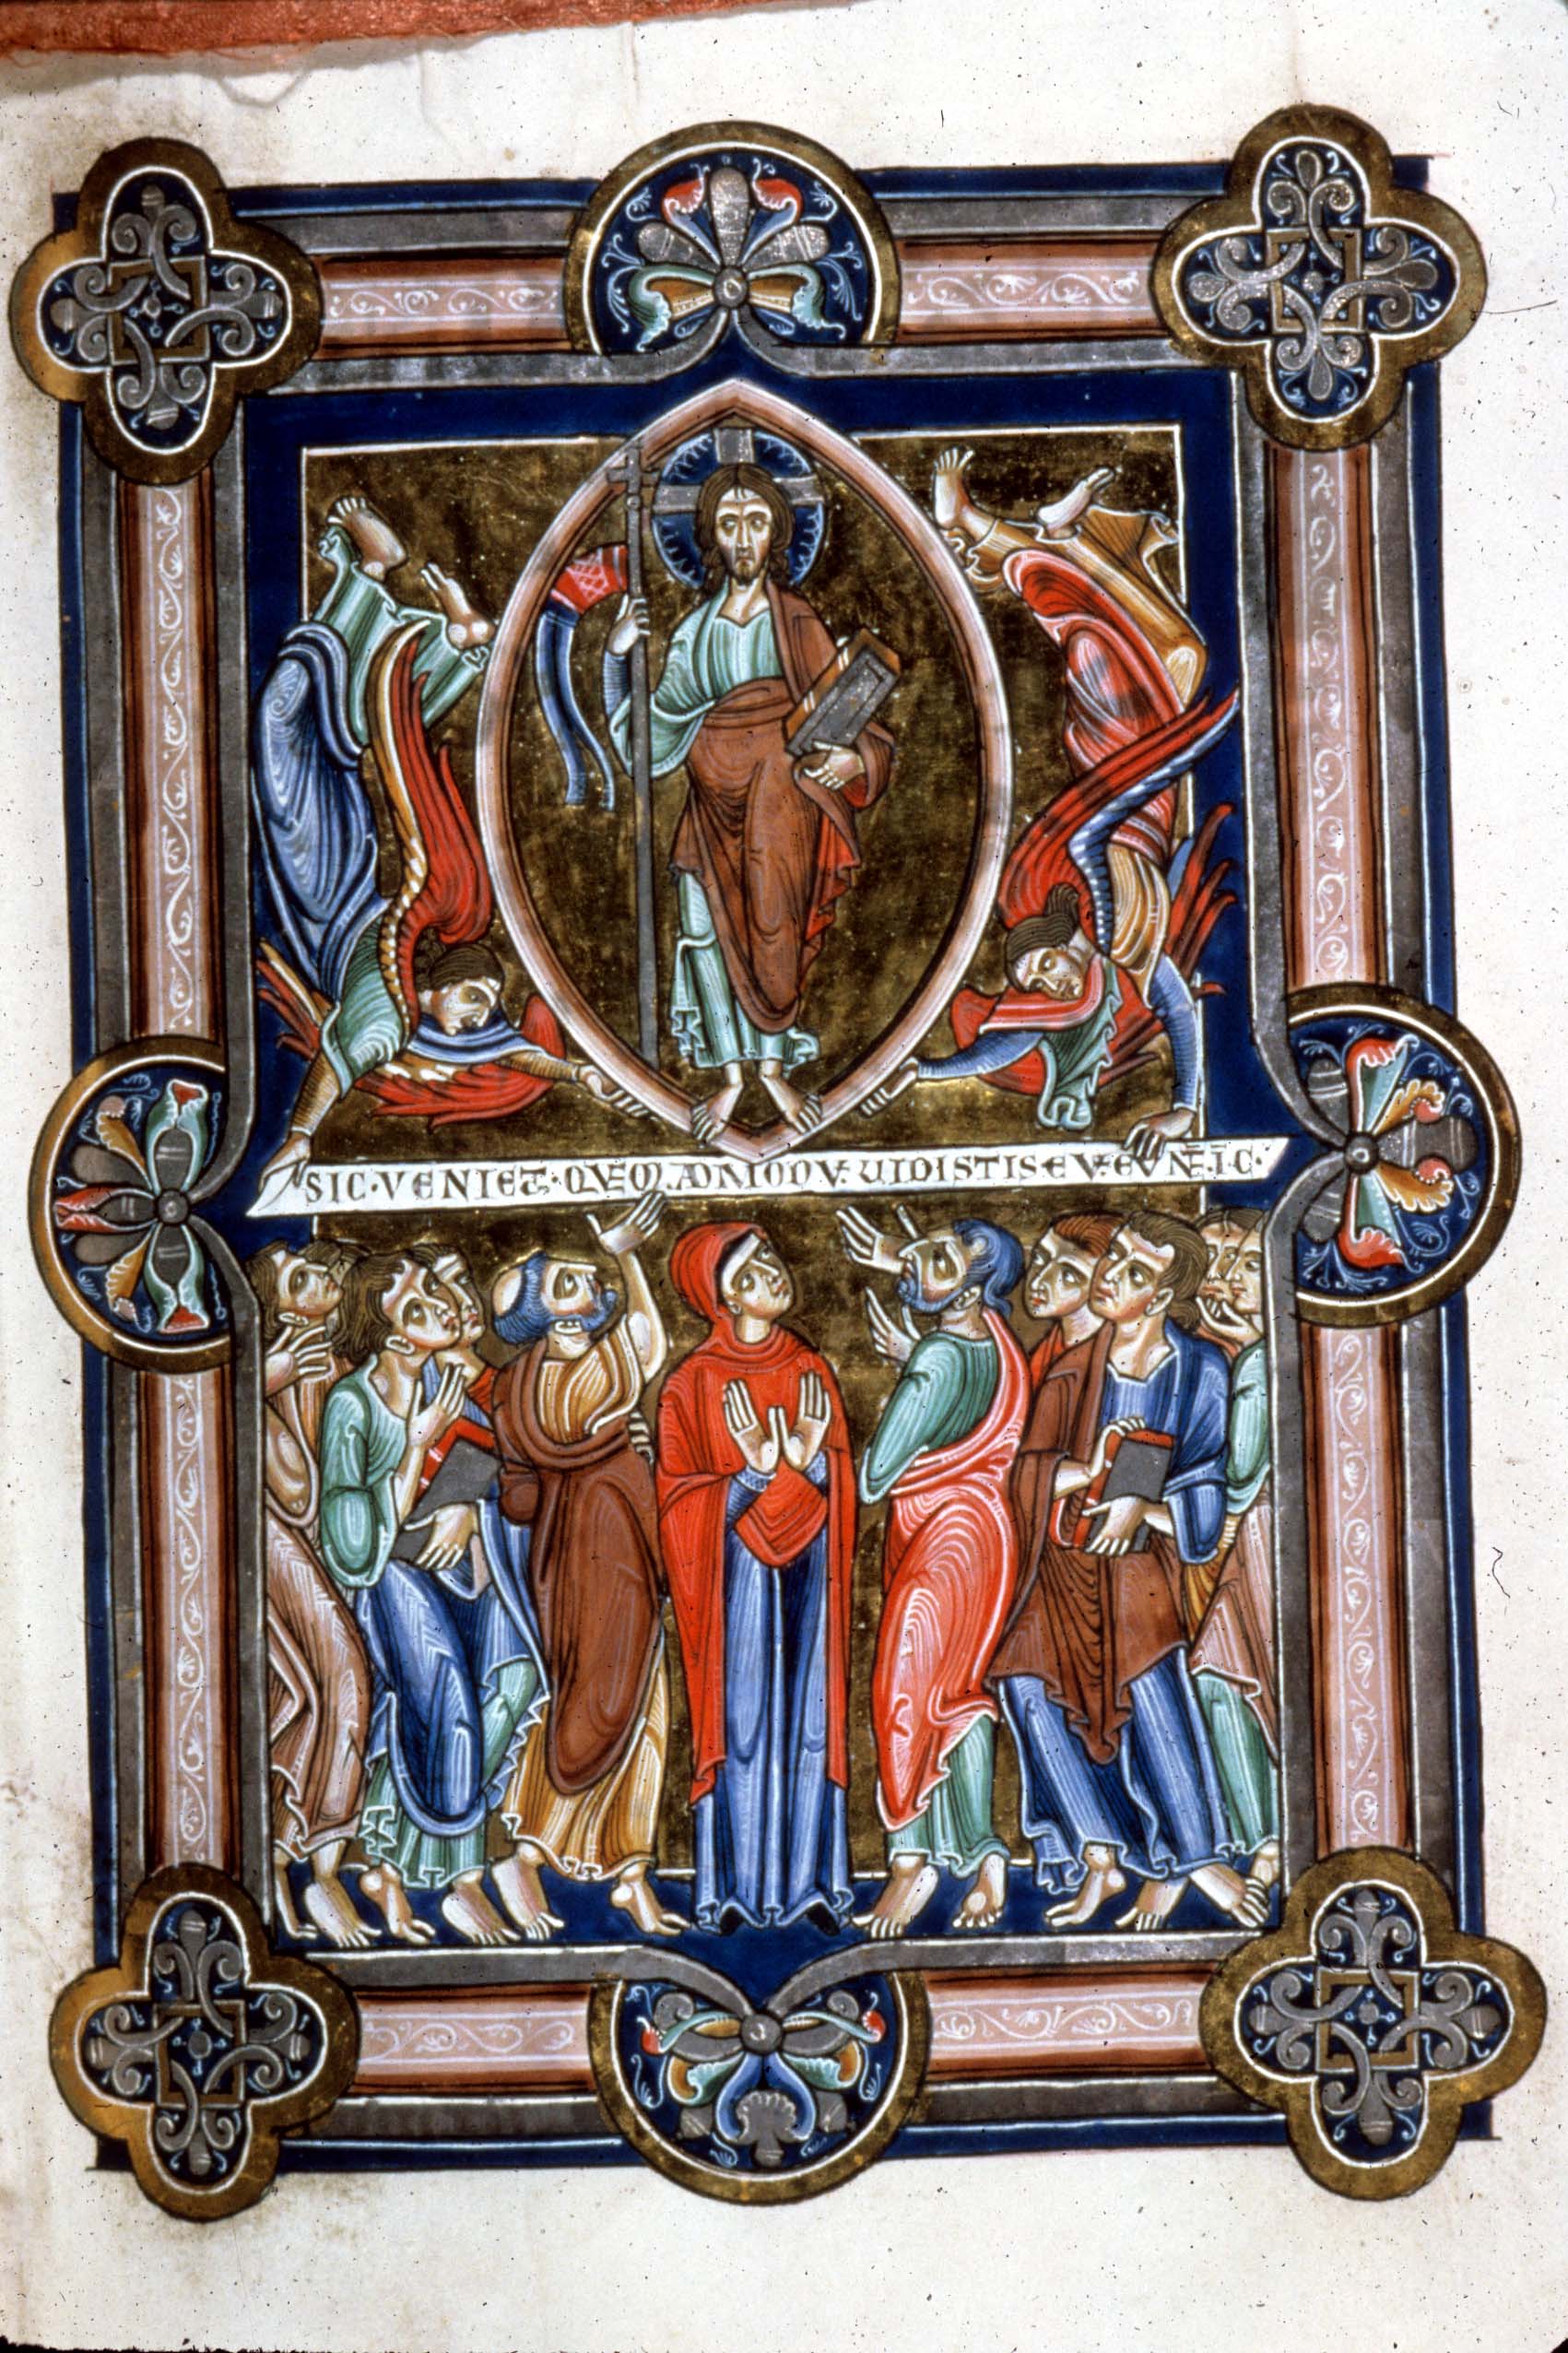 SIC·VENIET·QVEM̄·ADMODV̄·VIDISTIS EV̄·EVNT̄·I·C·